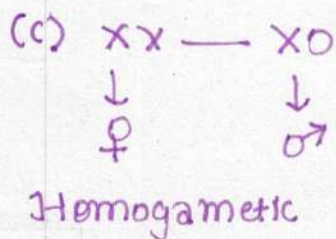 (C) XX — XO
↓ ↓
♀ ♂
Homogametic